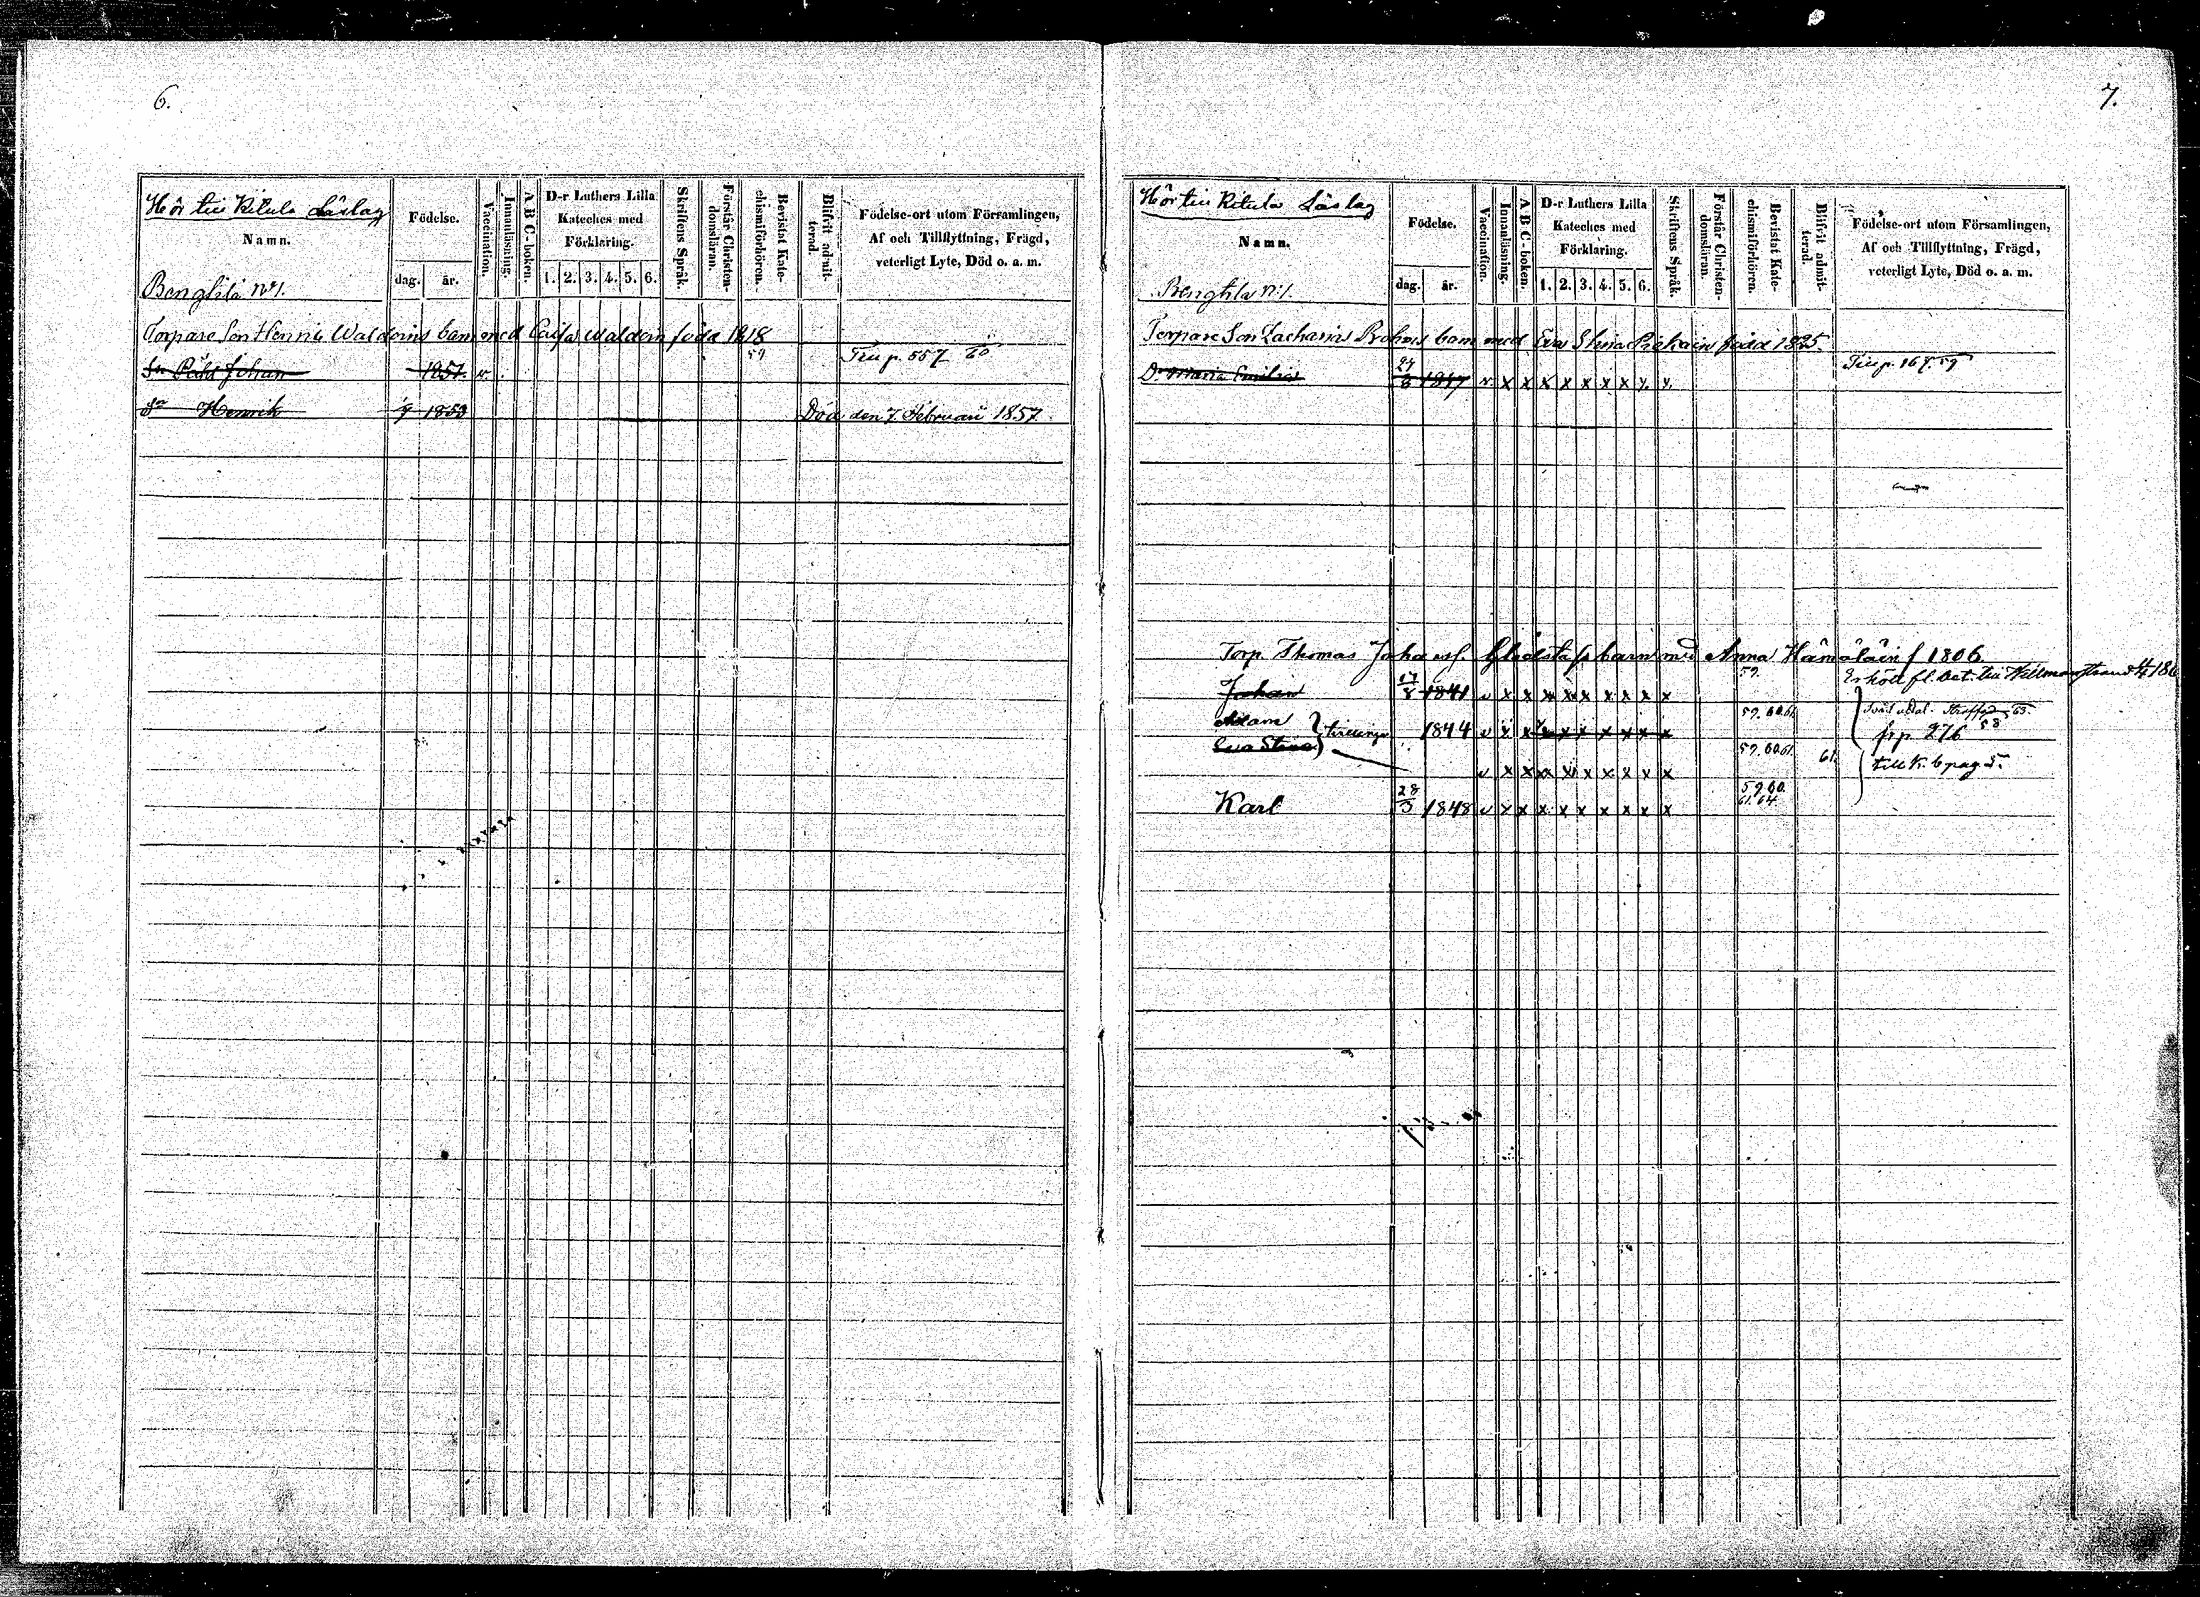 6.
Hör till Kitula Läslag
Namn.
Födelse.
dag. år.
Vaccination.
Innanläsning.
A B C-boken.
D-r Luthers Lilla
Kateches med
Förklaring.
1. 2. 3. 4. 5. 6.
Skriftens Språk.
Förstår Christen-
domsläran.
Bevistat Kate-
chismiförhören.
Blifvit admit-
terad.
Födelse-ort utom Församlingen,
Af och Tillflyttning, Frägd,
veterligt Lyte, Död o. a. m.
Benghila N:1.
Torpare Son Henrik Waldoins barn med Caisa Waldoin född 1818
Sn Påhl Johan 1851. v. 59 Till p. 557 60
Sn Henrik 1853 Död den 7 Februari 1857.
7.
Hör till Kitula Läslag
Namn.
Födelse.
dag. år.
Vaccination.
Innanläsning.
A B C-boken.
D-r Luthers Lilla
Kateches med
Förklaring.
1. 2. 3. 4. 5. 6.
Skriftens Språk.
Förstår Christen-
domsläran.
Bevistat Kate-
chismiförhören.
Blifvit admit-
terad.
Födelse-ort utom Församlingen,
Af och Tillflyttning, Frägd,
veterligt Lyte, Död o. a. m.
Benghila N:1.
Torpare Son Zacharias barn med Eva Stina född 1825.
Dr Maria Emilia 24/8 1847 v. x x x x x x x x x Till p. 167. 59
Torp. Thomas barn med Anna Hämäläin f 1806
Johan 17/8 1841 v x x x x x x x x x 59.
Adam } tvillingar 1844 v x x x x x x x x x 59. 60. 61.
Eva Stina v x x x x x x x x x 59. 60. 61. 61.
frp 276 58
till K. b pag 5.
Karl 28/3 1848 v x x x x x x x x x 59. 60.
61. 64